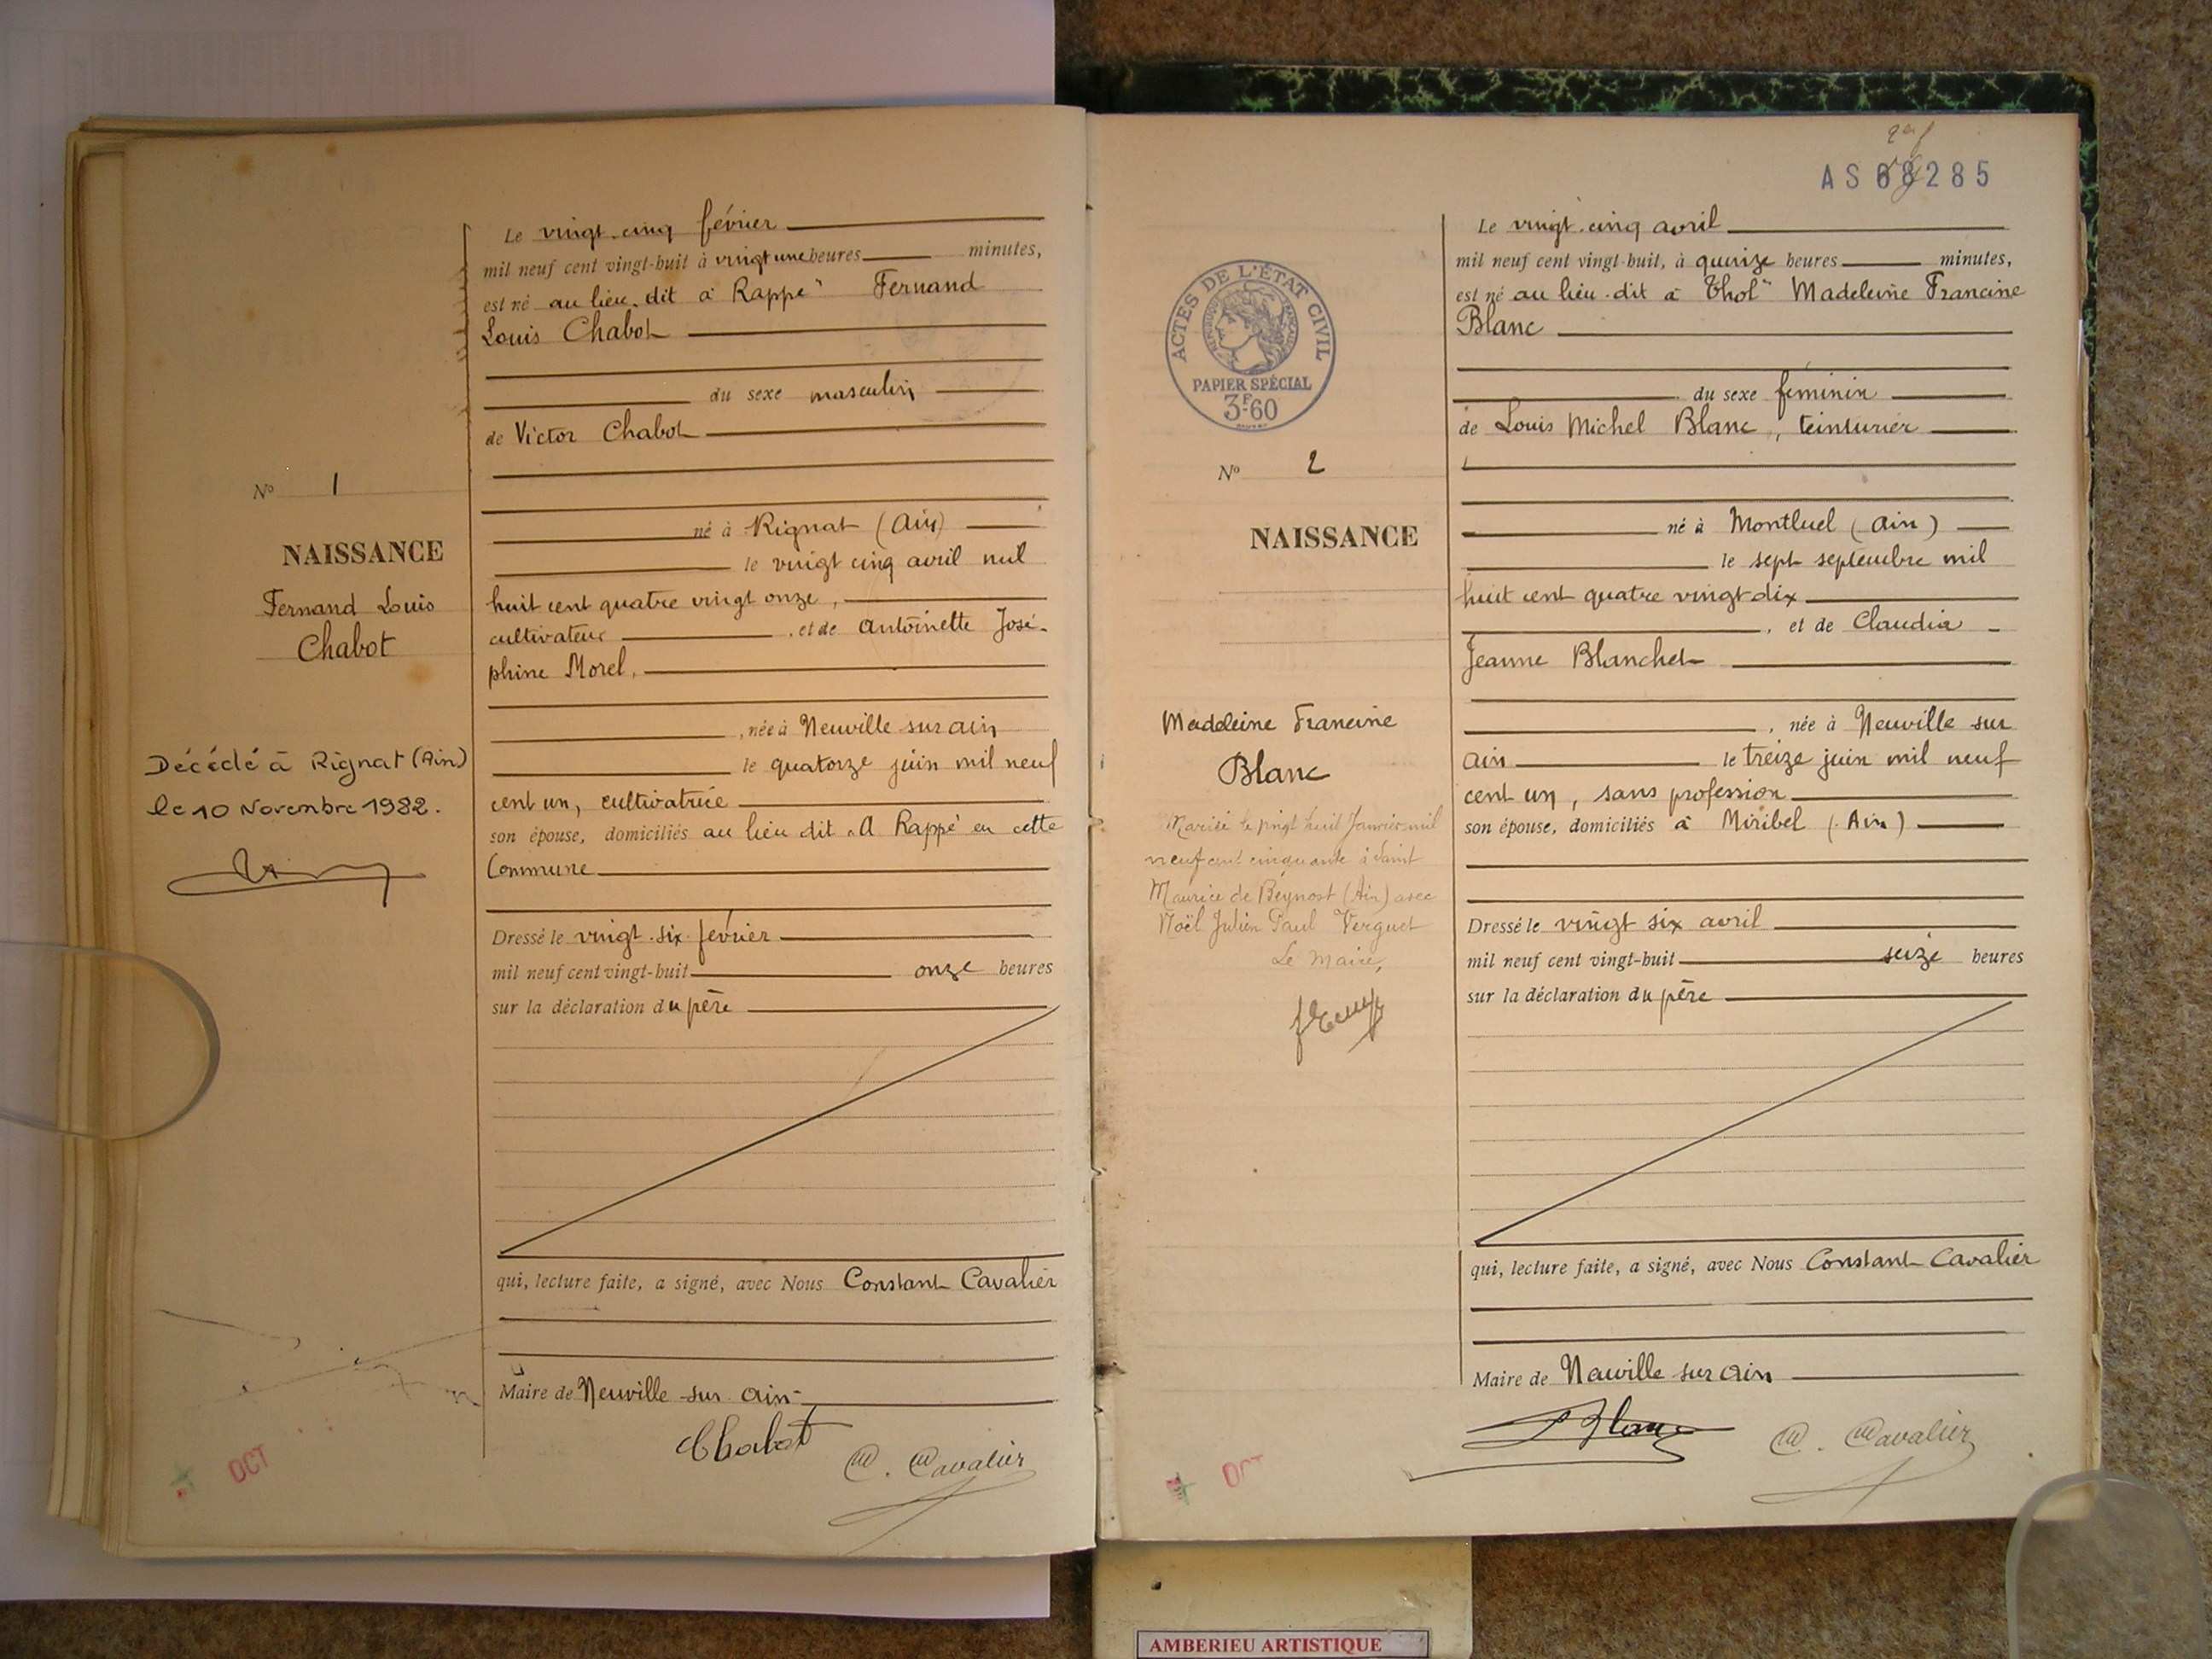 Le vingt-cinq février
mil neuf cent vingt-huit à vingt une heures minutes,
est né au lieu dit "à Rappe" Fernand
Louis Chabot
du sexe masculin
de Victor Chabot
né à Rignat (Ain)
le vingt cinq avril mil
huit cent quatre vingt onze,
cultivateur, et de Antoinette José-
phine Morel,
, née à Neuville sur Ain
le quatorze juin mil neuf
cent un, cultivatrice
son épouse, domiciliés au lieu dit "A Rappe" en cette
Commune
Dressé le vingt-six février
mil neuf cent vingt-huit onze heures
sur la déclaration du père
qui, lecture faite, a signé, avec Nous Constant Cavalier
Maire de Neuville sur Ain
Chabot
C. Cavalier
No 1
NAISSANCE
Fernand Louis
Chabot
Décédé à Rignat (Ain)
le 10 Novembre 1982.
OCT
AS 68285
ACTES DE L'ÉTAT CIVIL
RÉPUBLIQUE FRANÇAISE
PAPIER SPÉCIAL
3F60
No 2
NAISSANCE
Madeleine Francine
Blanc
Mariée le vingt huit Janvier mil
neuf cent cinquante à Saint
Maurice de Beynost (Ain) avec
Noël Julien Paul Verguet
Le Maire,
Le vingt-cinq avril
mil neuf cent vingt-huit, à quinze heures minutes,
est né au lieu-dit "à Thol" Madeleine Francine
Blanc
du sexe féminin
de Louis Michel Blanc, teinturier
né à Montluel (Ain)
le sept septembre mil
huit cent quatre vingt dix
, et de Claudia
Jeanne Blanchet
, née à Neuville sur
Ain le treize juin mil neuf
cent un, sans profession
son épouse, domiciliés à Miribel (Ain)
Dressé le vingt six avril
mil neuf cent vingt-huit seize heures
sur la déclaration du père
qui, lecture faite, a signé, avec Nous Constant Cavalier
Maire de Neuville sur Ain
Blanc
C. Cavalier
AMBERIEU ARTISTIQUE